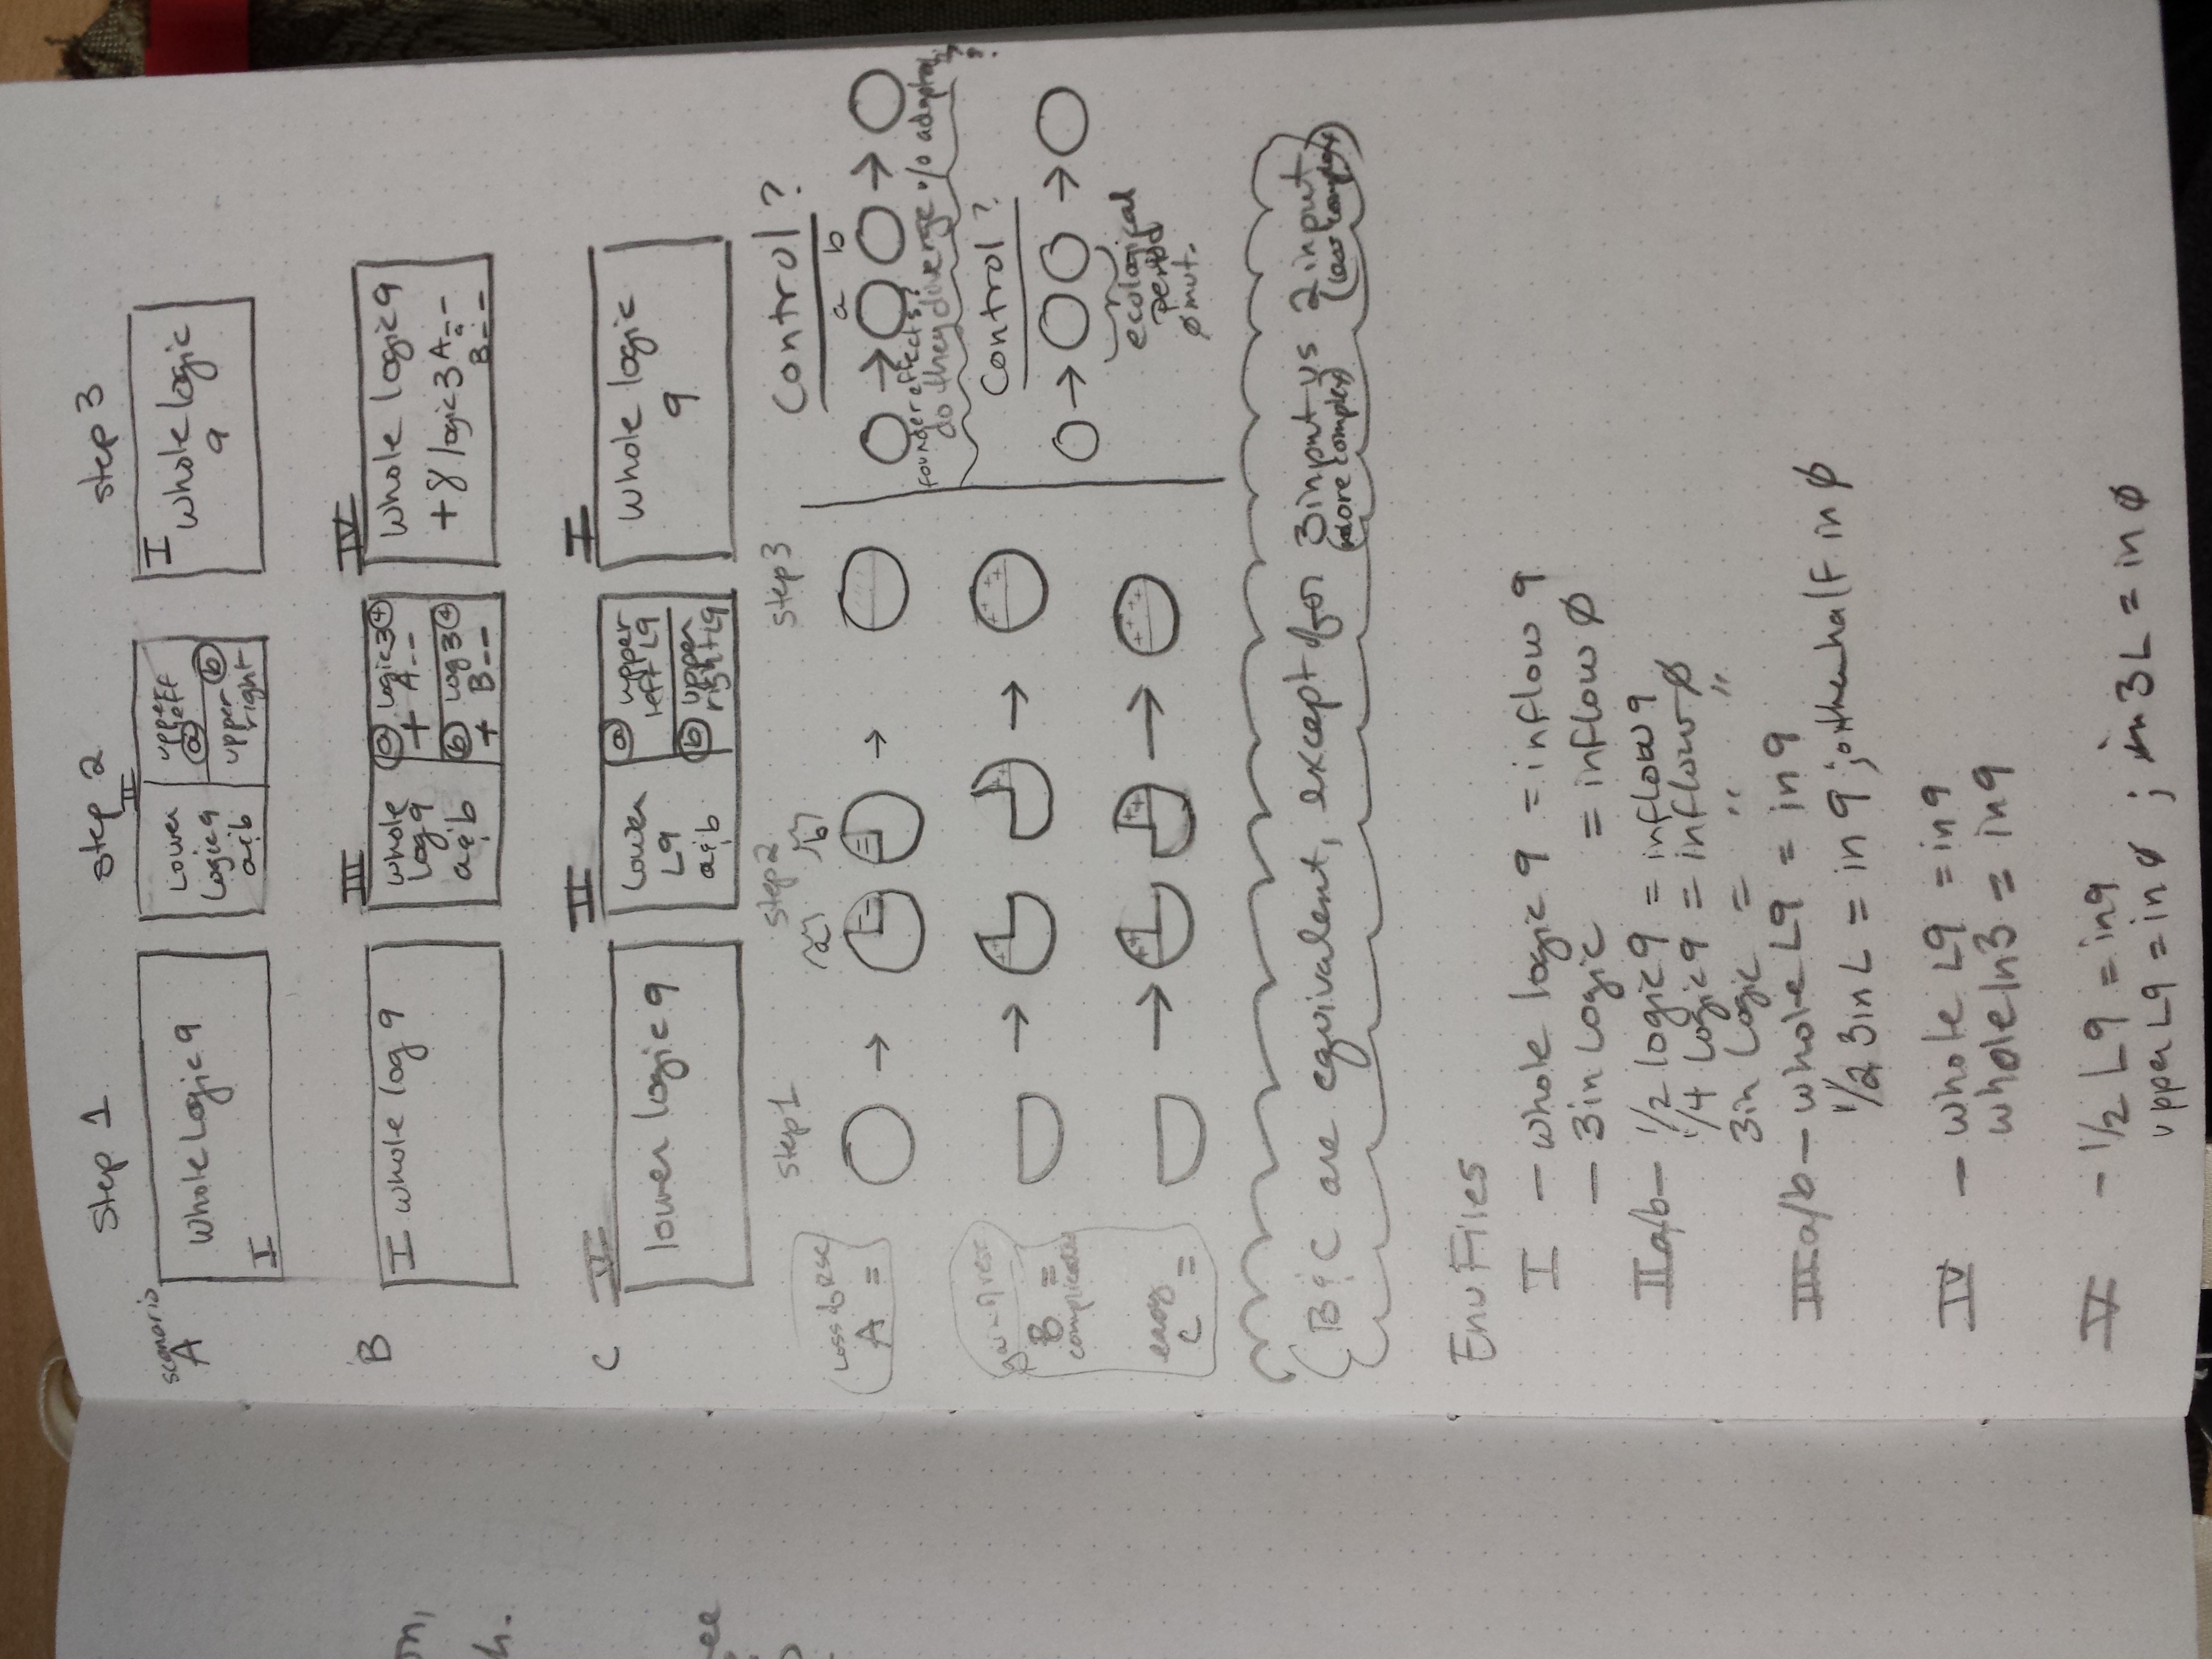 on,
h.
ee
step 1 step 2 step 3
scenario
A
whole Logic 9
I
II
Lower
Logic 9
a & b
upper
left
(a)
(b)
upper
right
I
whole logic
9
B
I whole log 9
III
whole
log 9
a & b
(a) logic 3 (+)
+ A--
(b) log 3 (+)
+ B--
IV
whole logic 9
+8 logic 3 A--
&
B--
C
V
lower logic 9
II
Lower
L9
a & b
(a) upper
left L9
(b) upper
right L9
I
whole logic
9
step 1 step 2 step 3
Loss of Rsc
A =
a b
→ →
gain of resc
B =
complicated
→ →
easy
C =
→ →
Control?
a b
→ →
founder effects?
do they diverge w/o
Control?
→ →
ecological
period
ø mut.
B & C are equivalent, except for 3 input vs 2 input
(more complex) (less complex)
Env Files
I - whole logic 9 = inflow 9
- 3in Logic = inflow Ø
II a/b - 1/2 logic 9 = inflow 9
1/4 Logic 9 = inflow Ø
3in Logic = " "
III a/b - whole L9 = in 9
1/2 3in L = in 9 ; other half in Ø
IV - whole L9 = in 9
whole In3 = in 9
V - 1/2 L9 = in 9
upper L9 = in Ø ; 3L = in Ø